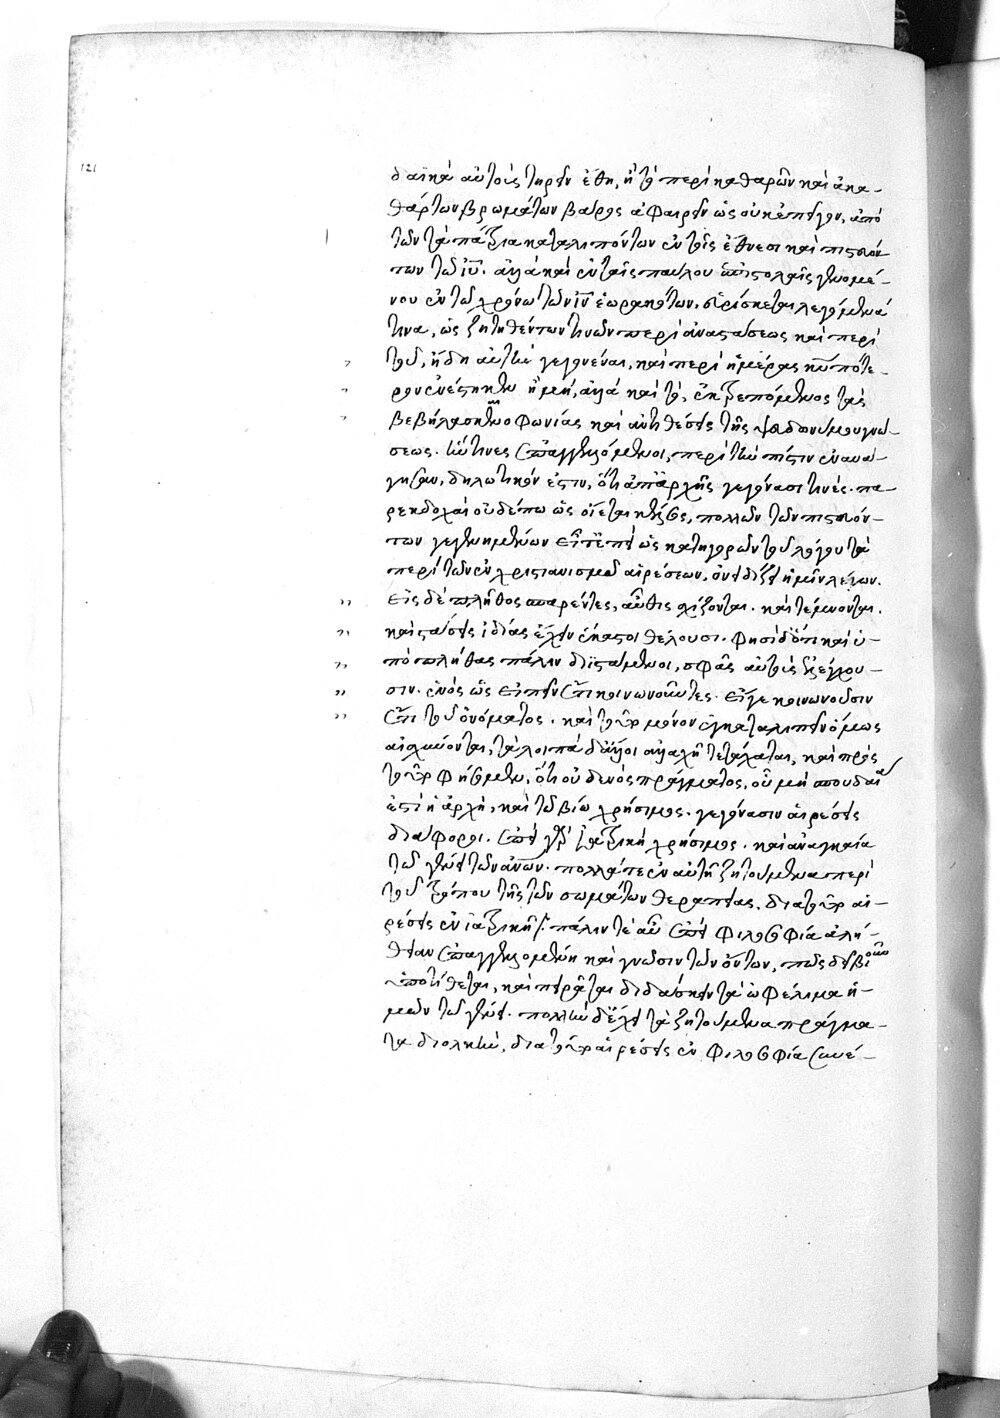 121
δαϊκὰ αὐτοὺς τηρεῖν ἔθη, ἢ τὸ περὶ καθαρῶν καὶ ἀκα-
θάρτων βρωμάτων βάρος ἀφαιρεῖν ὡς οὐκ ἐπεῖγον, ἀπὸ
τῶν τὰ πάτρια καταλιπόντων ἐν τοῖς ἔθνεσι καὶ πιστευόν-
των τῷ ἰῦ. ἀλλὰ καὶ ἐν ταῖς παύλου ἐπιστολαῖς γενομέ-
νου ἐν τῷ χρόνῳ τῶν ἰῦν ἑωρακότων, εὑρίσκεται λεγόμενά
τινα, ὡς ζητηθέντων τινῶν περὶ ἀναστάσεως καὶ περὶ
τοῦ, ἤδη αὐτὴν γεγονέναι, καὶ περὶ ἡμέρας κῦ πότε-
ρον ἐνέστηκεν ἢ μή, ἀλλὰ καὶ τὸ, ἐκτρεπόμενος τὰς
βεβήλας κενοφωνίας καὶ ἀντιθέσεις τῆς ψευδωνύμου γνώ-
σεως. ἥν τινες ἐπαγγελλόμενοι, περὶ τὴν πίστιν ἐναυά-
γησαν, δηλωτικόν ἐστιν, ὅτι ἀπαρχῆς γεγόνασί τινές πα-
ρεκδοχαὶ οὐδέπω ὡς οἴεται κέλσος, πολλῶν τῶν πιστευόν-
των γεγενημένων εἶτ' ἐπεὶ ὡς κατηγορῶν τοῦ λόγου τὰ
περὶ τῶν ἐν χριστιανισμῷ αἱρέσεων, ὀνειδίζει ἡμῖν λέγων.
εἰς δὲ πλῆθος σπαρέντες, αὖθις σχίζονται. καὶ τέμνονται.
καὶ στάσεις ἰδίας ἔχειν ἕκαστοι θέλουσι. φησὶ δ' ὅτι καὶ ὑ-
πὸ πλήθους πάλιν διϊστάμενοι, σφᾶς αὐτοὺς ἐλέγχου-
σιν. ἑνὸς ὡς εἰπεῖν ἔτι κοινωνοῦντες. εἴγε κοινωνοῦσιν
ἔτι τοῦ ὀνόματος. καὶ τοῦτο μόνον ἐγκαταλιπεῖν ὅμως
αἰσχύνονται, τὰ λοιπὰ δ' ἄλλοι ἀλλαχῇ τετάχαται, καὶ πρὸς
τοῦτο φήσομεν, ὅτι οὐδενὸς πράγματος, οὗ μὴ σπουδαία
ἐστὶ ἡ ἀρχὴ, καὶ τῷ βίῳ χρήσιμος. γεγόνασιν αἱρέσεις
διάφοροι. ἐπεὶ γὰρ ἰατρικὴ χρήσιμος. καὶ ἀναγκαία
τῷ γένει τῶν ἀνῶν. πολλά τε ἐν αὐτῇ ζητούμενα περὶ
τοῦ τρόπου τῆς τῶν σωμάτων θεραπείας. διὰ τοῦτο αἱ-
ρέσεις ἐν ἰατρικῇ. πάλιν τε αὖ ἐπεὶ φιλοσοφία ἀλή-
θειαν ἐπαγγελλομένη καὶ γνῶσιν τῶν ὄντων, πῶς δεῖ βιοῦν
ὑποτίθεται, καὶ πειρᾶται διδάσκειν τὰ ὠφέλιμα ἡ-
μῶν τῷ γένει. πολλὴν δ' ἔχει τὰ ζητούμενα πράγμα-
τα διολκὴν, διὰ τοῦτο αἱρέσεις ἐν φιλοσοφίᾳ συνέ-